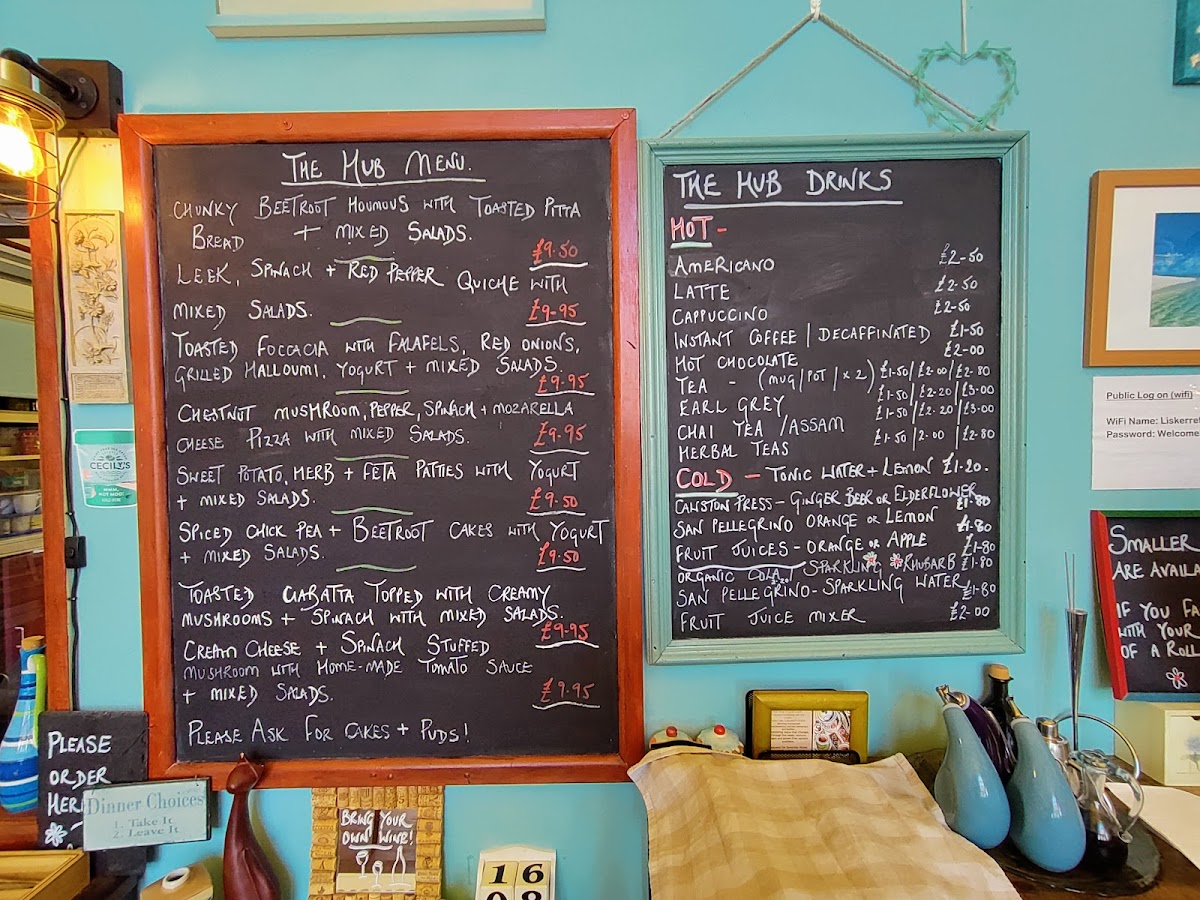 THE HUB MENU.
CHUNKY BEETROOT HOUMOUS WITH TOASTED PITTA
BREAD + MIXED SALADS.
£9.50
LEEK, SPINACH + RED PEPPER QUICHE WITH
MIXED SALADS. £9-95
TOASTED FOCCACIA WITH FALAFELS, RED ONIONS,
GRILLED HALLOUMI, YOGURT + MIXED SALADS.
£9.95
CHESTNUT MUSHROOM, PEPPER, SPINACH + MOZARELLA
CHEESE PIZZA WITH MIXED SALADS. £9.95
SWEET POTATO, HERB + FETA PATTIES WITH YOGURT
+ MIXED SALADS. £9.50
SPICED CHICK PEA + BEETROOT CAKES WITH YOGURT
+ MIXED SALADS. £9.50
TOASTED CIABATTA TOPPED WITH CREAMY
MUSHROOMS + SPINACH WITH MIXED SALADS.
£9.95
CREAM CHEESE + SPINACH STUFFED
MUSHROOM WITH HOME-MADE TOMATO SAUCE
+ MIXED SALADS. £9.95
PLEASE ASK FOR CAKES + PUDS!
THE HUB DRINKS
HOT -
AMERICANO £2-50
LATTE £2-50
CAPPUCCINO £2-50
INSTANT COFFEE | DECAFFINATED £1-50
HOT CHOCOLATE £2-00
TEA - (MUG | POT | x 2) £1-50 | £2-00 | £2-80
EARL GREY £1-50 | £2-20 | £3-00
CHAI TEA / ASSAM £1-50 | £2-20 | £3-00
HERBAL TEAS £1-50 | 2-00 | £2-80
COLD - TONIC WATER + LEMON £1-20-
CAWSTON PRESS - GINGER BEER OR ELDERFLOWER £1-80
SAN PELLEGRINO ORANGE OR LEMON £1-80
FRUIT JUICES - ORANGE OR APPLE £1-80
ORGANIC COLA SPARKLING RHUBARB £1-80
SAN PELLEGRINO - SPARKLING WATER £1-80
FRUIT JUICE MIXER £2-00
Public Log on (wifi)
WiFi Name: Liskerret
Password: Welcome
SMALLER
ARE AVAILA
IF YOU FA
WITH YOUR
OF A ROLL
CECILY'S
PLEASE
ORDER
HER
Dinner Choices
1. Take It
2. Leave It
BRING YOUR
OWN WINE!
16
08